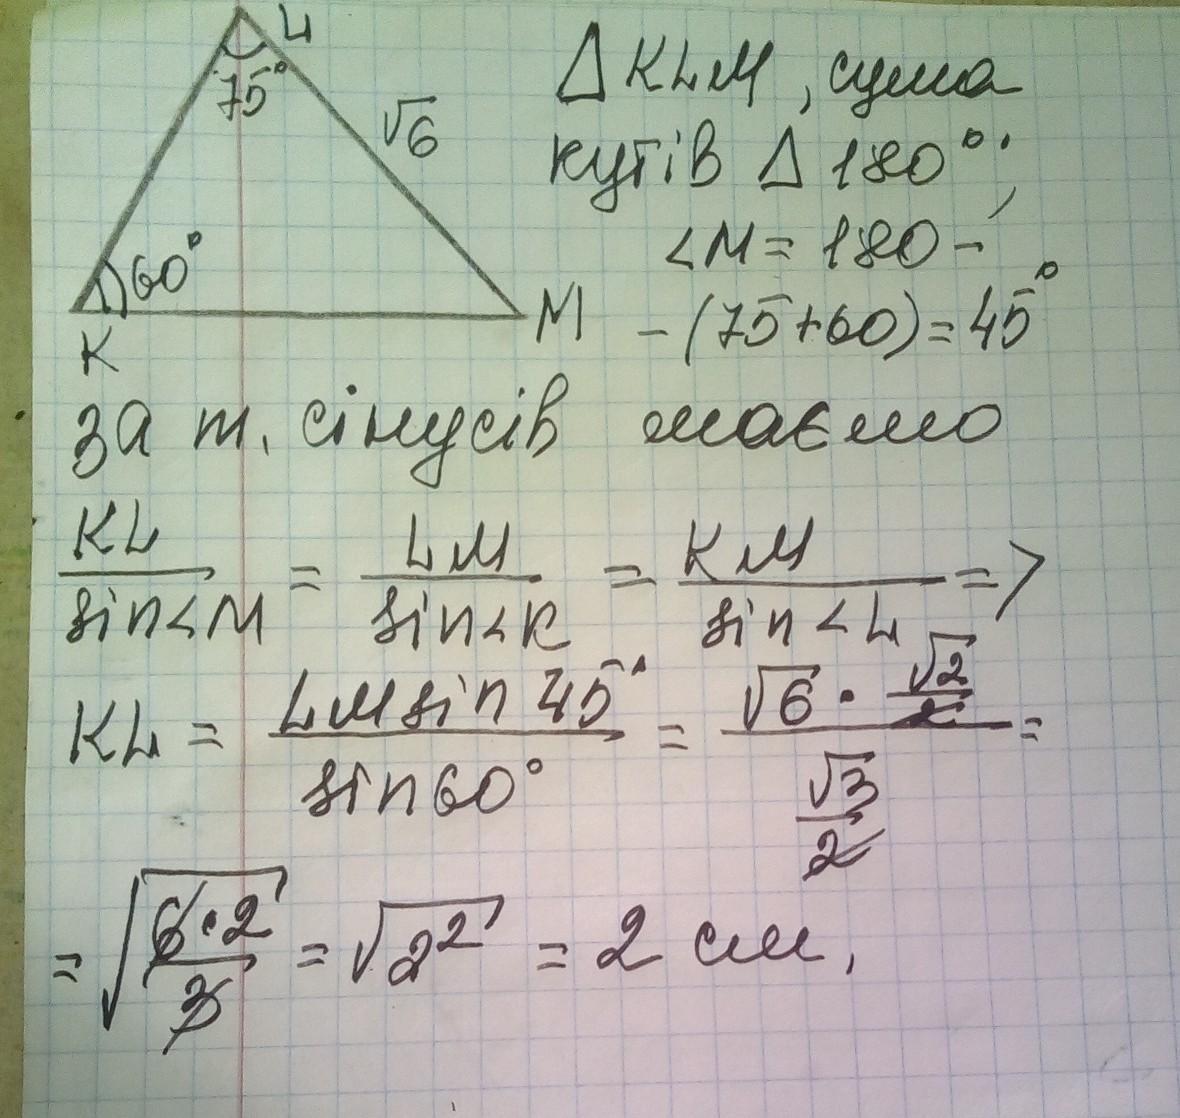 L
75°
√6
60°
K
M
Δ KLM, сума
кутів Δ 180°;
∠M = 180 -
- (75+60) = 45°
за т. сінусів маємо
KL/sin∠M = LM/sin∠K = KM/sin∠L =>
KL = LM sin 45°/sin 60° = (√6 · √2/2)/(√3/2) =
= √(6·2/3) = √2² = 2 см,